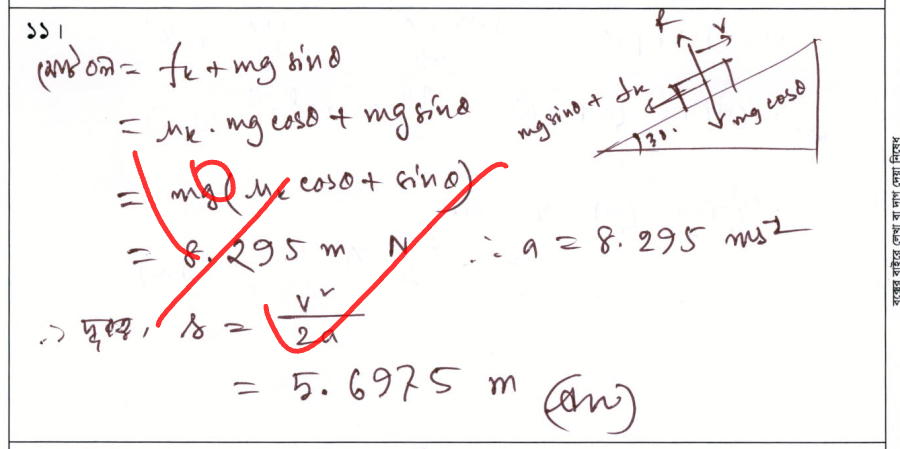 ১১।
মোট বল = fₖ + mg sinθ
= μₖ. mg cosθ + mg sinθ
= mg(μₖ cosθ + sinθ)
= 8.295 m N ∴ a = 8.295 ms²
∴ দূরত্ব, s = v²/2a
= 5.6975 m (Ans)
R
v
mg sinθ + fₖ
mg cosθ
30°
বক্সের বাইরে লেখা বা দাগ দেয়া নিষেধ